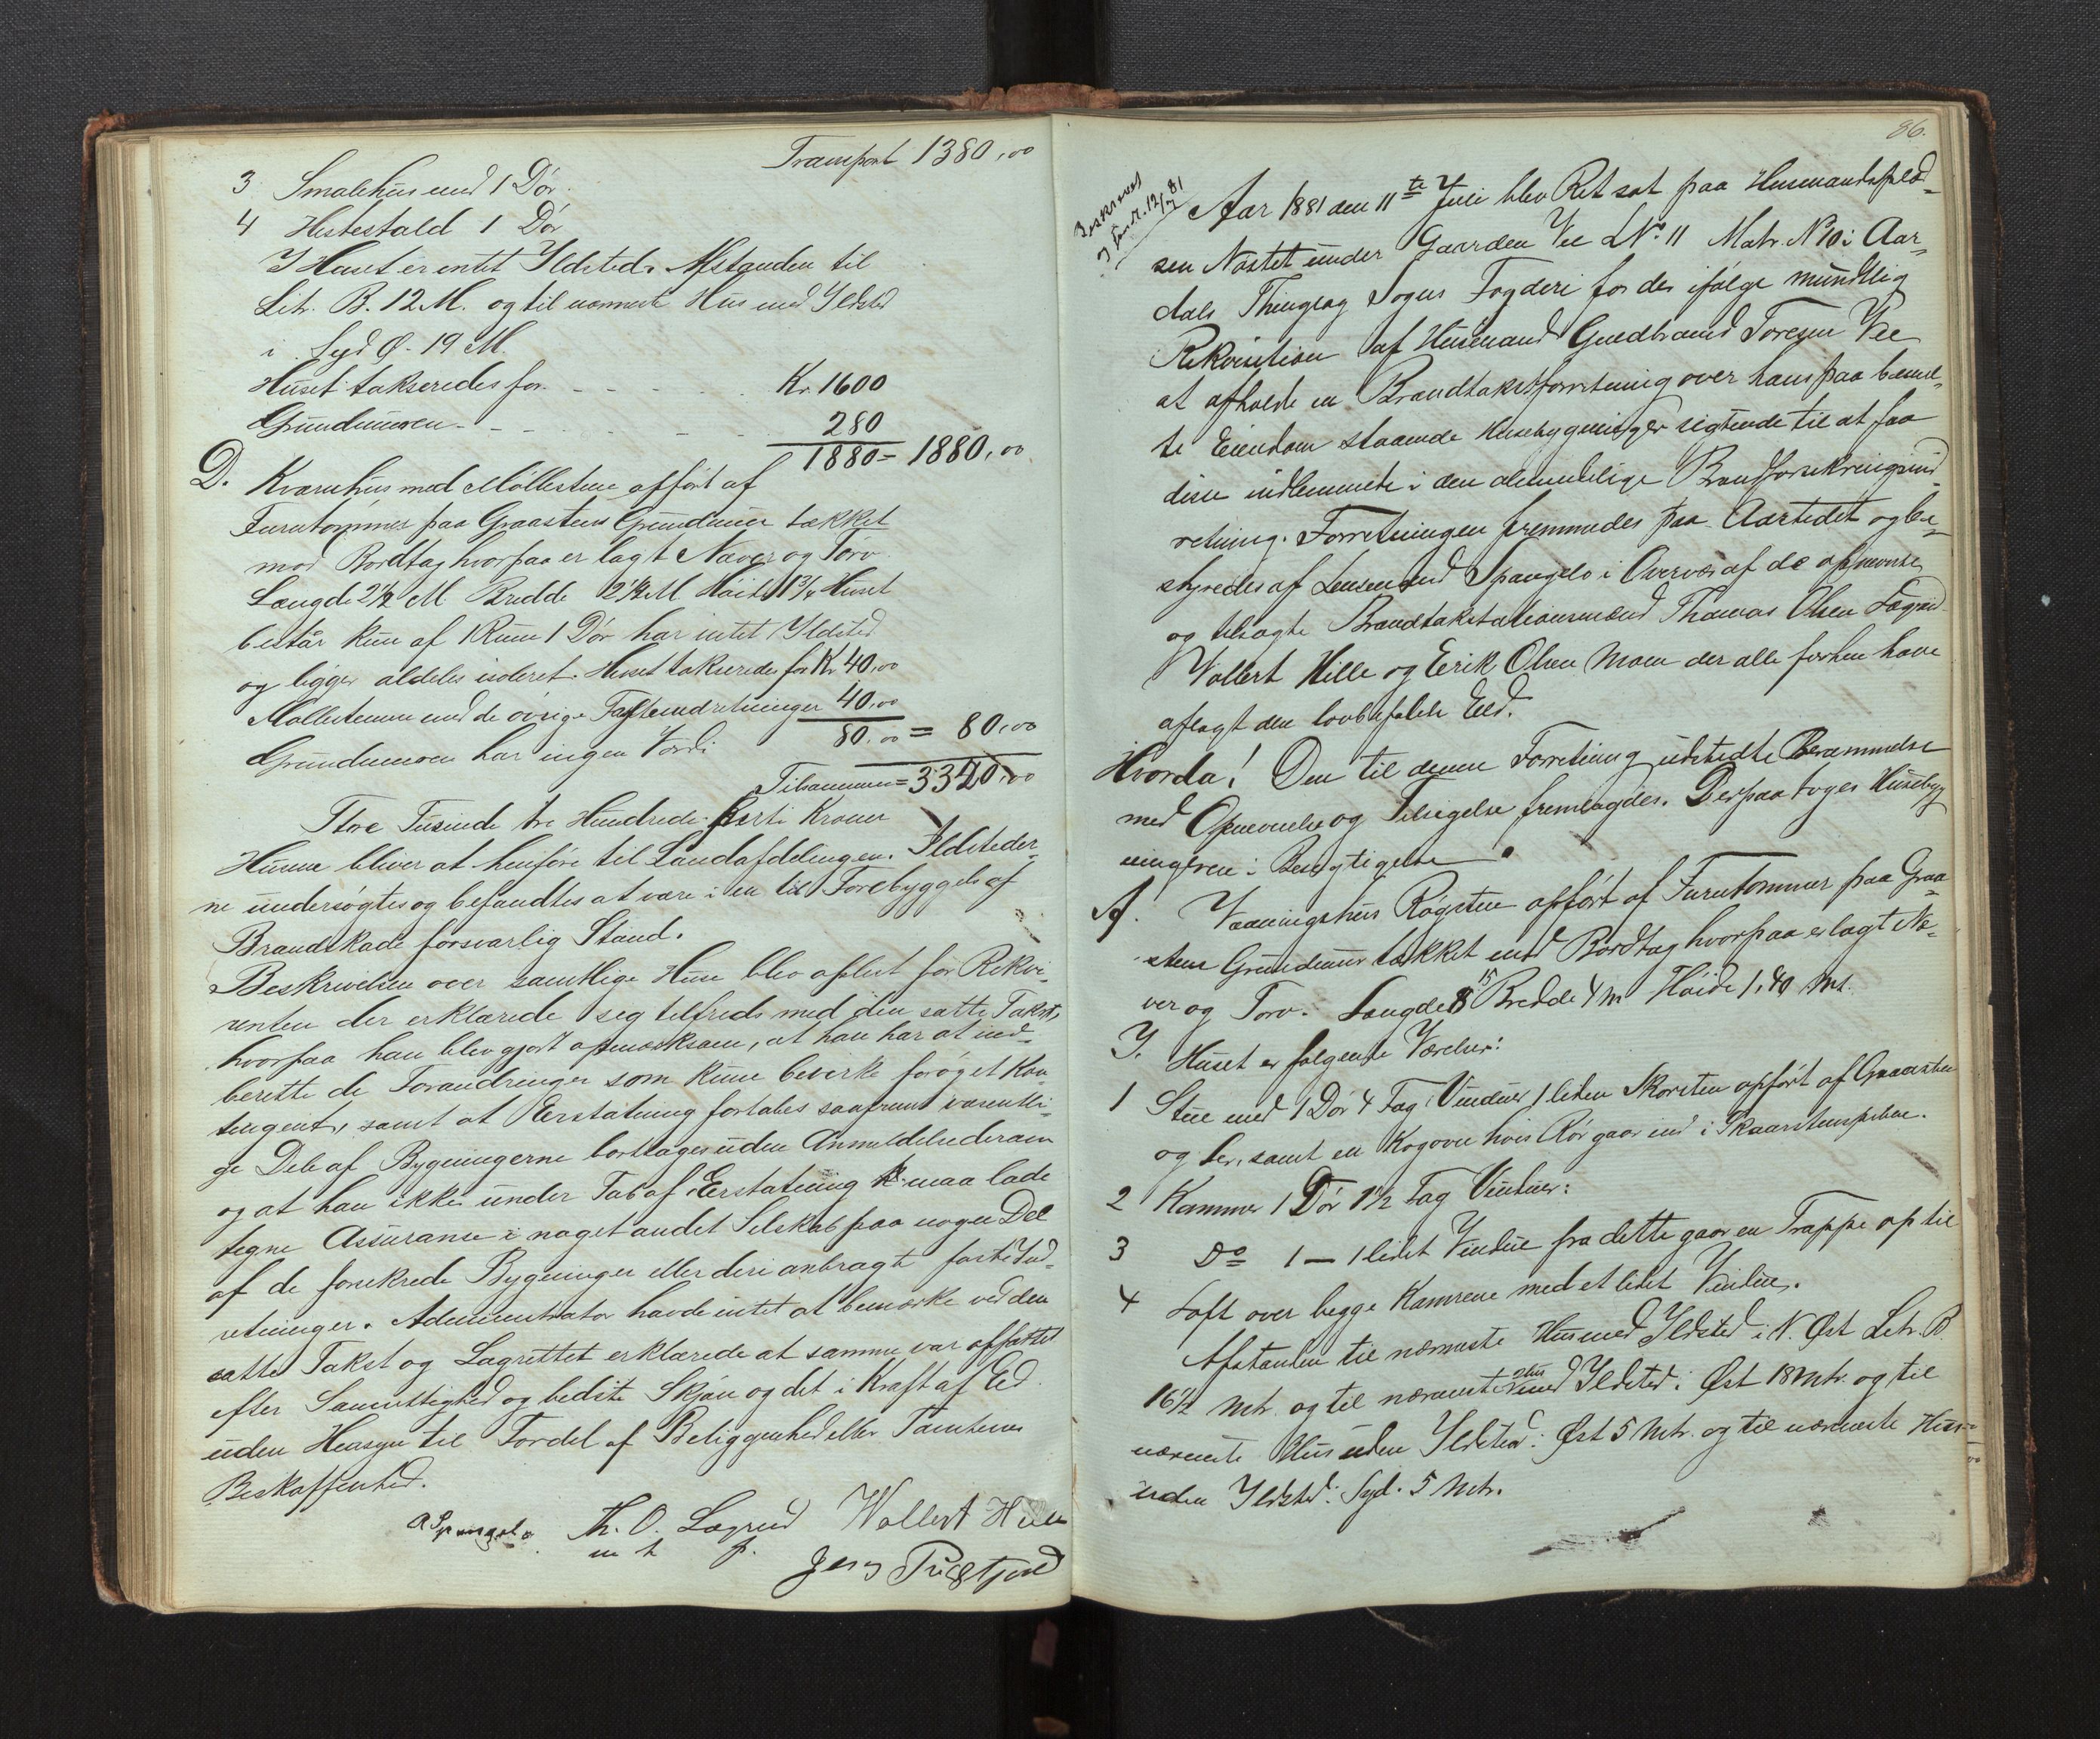 Transport 1380,00
3 Smalehus med 1 Dör
4 Hestestald 1 Dör
I Huset er intet Ildsted. Afstanden til
Litr. B. 12 M. og til nærmeste Hus med Ildsted
i Syd Ø. 19 M.
Huset takseredes for Kr. 1600
Grundmuren 280
1880 = 1880,00
D. Kværnhus med Möllestene opfört af
Furutömmer paa Graastens Grundmur tækket
med Bordtag hvorpaa er lagt Næver og Törv
Længde 2 1/2 M Bredde 2 1/2 M Höide 1 3/4 Huset
består kun af 1 Rum 1 Dör har intet Ildsted
og ligger aldeles isoleret. Huset takseredes for Kr 40,00
Möllestenene med de övrige Fasteindretninger 40,00
80,00 = 80,00
Grundmuren har ingen Værdi
Tilsammen = 3340,00
Tre Tusinde tre Hundrede förti Kroner
Husene bliver at henföre til Landafdelingen. Ildsteder-
ne undersögtes og befandtes at være i en til Forebyggelse af
Brandskade forsvarlig Stand.
Beskrivelsen over samtlige Huse blev oplæst for Rekvi-
renten der erklærede sig tilfreds med den satte Takst,
hvorpaa han blev gjort opmærksom, at han har at ind-
berette de Forandringer som kunne bevirke foröget Kon-
tingent, samt at Erstatning fortabes saafremt væsentli-
ge Dele af Bygningerne borttages uden Anmeldelse derom
og at han ikke under Tab af Erstatning maa lade
tegne Assurance i noget andet Selskab paa nogen Del
af de forsikrede Bygninger eller deri anbragte faste Ind-
retninger. Administrator havde intet at bemærke ved den
satte Takst og Lagrettet erklærede at samme var affattet
efter Samvittighed og bedste Skjön og det i Kraft af Ed
uden Hensyn til Fordel af Beliggenhed eller Tomtens
Beskaffenhed.
A Spangelo Th. O. Lægreid Wollert Hille
m h p.
Jens
86.
Beskrevet
12/7 81
Aar 1881 den 11te Juli blev Ret sat paa Husmandsplad-
sen Nöstet under Gaarden Vee LNo. 11 Matr. N 10 i Aar-
dals Thinglag Sogns Fogderi for der ifölge mundtlig
Rekvisition af Husmand Gudbrand Toresen Vee
at afholde en Brandtakstforretning over hans paa bemeld-
te Eiendom staaende Husebygninger sigtende til at faa
disse indlemmede i den almindelige Brandforsikringsind-
retning. Forretningen fremmedes paa Aastedet og be-
styredes af Lensmand Spangelo i Overvær af de opnævnte
og tilsagte Brandtakstationsmænd Thomas Olsen Lægreid
Vollert Hille og Eerik Olsen Moen der alle forhen have
aflagt den lovbefalede Eed.
Hvorda! Den til denne Forretning udstedte Berammelse
med Opnævnelse og Tilsigelse fremlagdes. Derpaa toges Husebyg-
ningerne i Besigtigelse
A. Vaaningshus Rögstue opfört af Furutömmer paa Graa-
stens Grundmur tækket med Bordtag hvorpaa er lagt Næ-
ver og Törv. Længde 8 15 Bredde 4 m Höide 1,40 Mt.
I Huset er fölgende Værelser:
1 Stue med 1 Dör 4 Fag Vinduer 1 liden Skorsten opfört af Graasten
og Ler, samt en Kogeovn hvis Rör gaar ind i Skaarstenspiben.
2 Kammer 1 Dör 1 1/2 Fag Vinduer:
3 Do 1 — 1 lidet Vindue fra dette gaar en Trappe op til
4 Loft over begge Kamrene med et lidet Vindue.
Afstanden til nærmeste Hus med Ildsted i N. Øst Litr. B.
16 1/2 Mtr. og til nærmeste Hus med Ildsted i Øst 18 Mtr. og til
nærmeste Hus uden Ildsted i Øst 5 Mtr. og til nærmeste Hus
uden Ildsted i Syd. 5 Mtr.